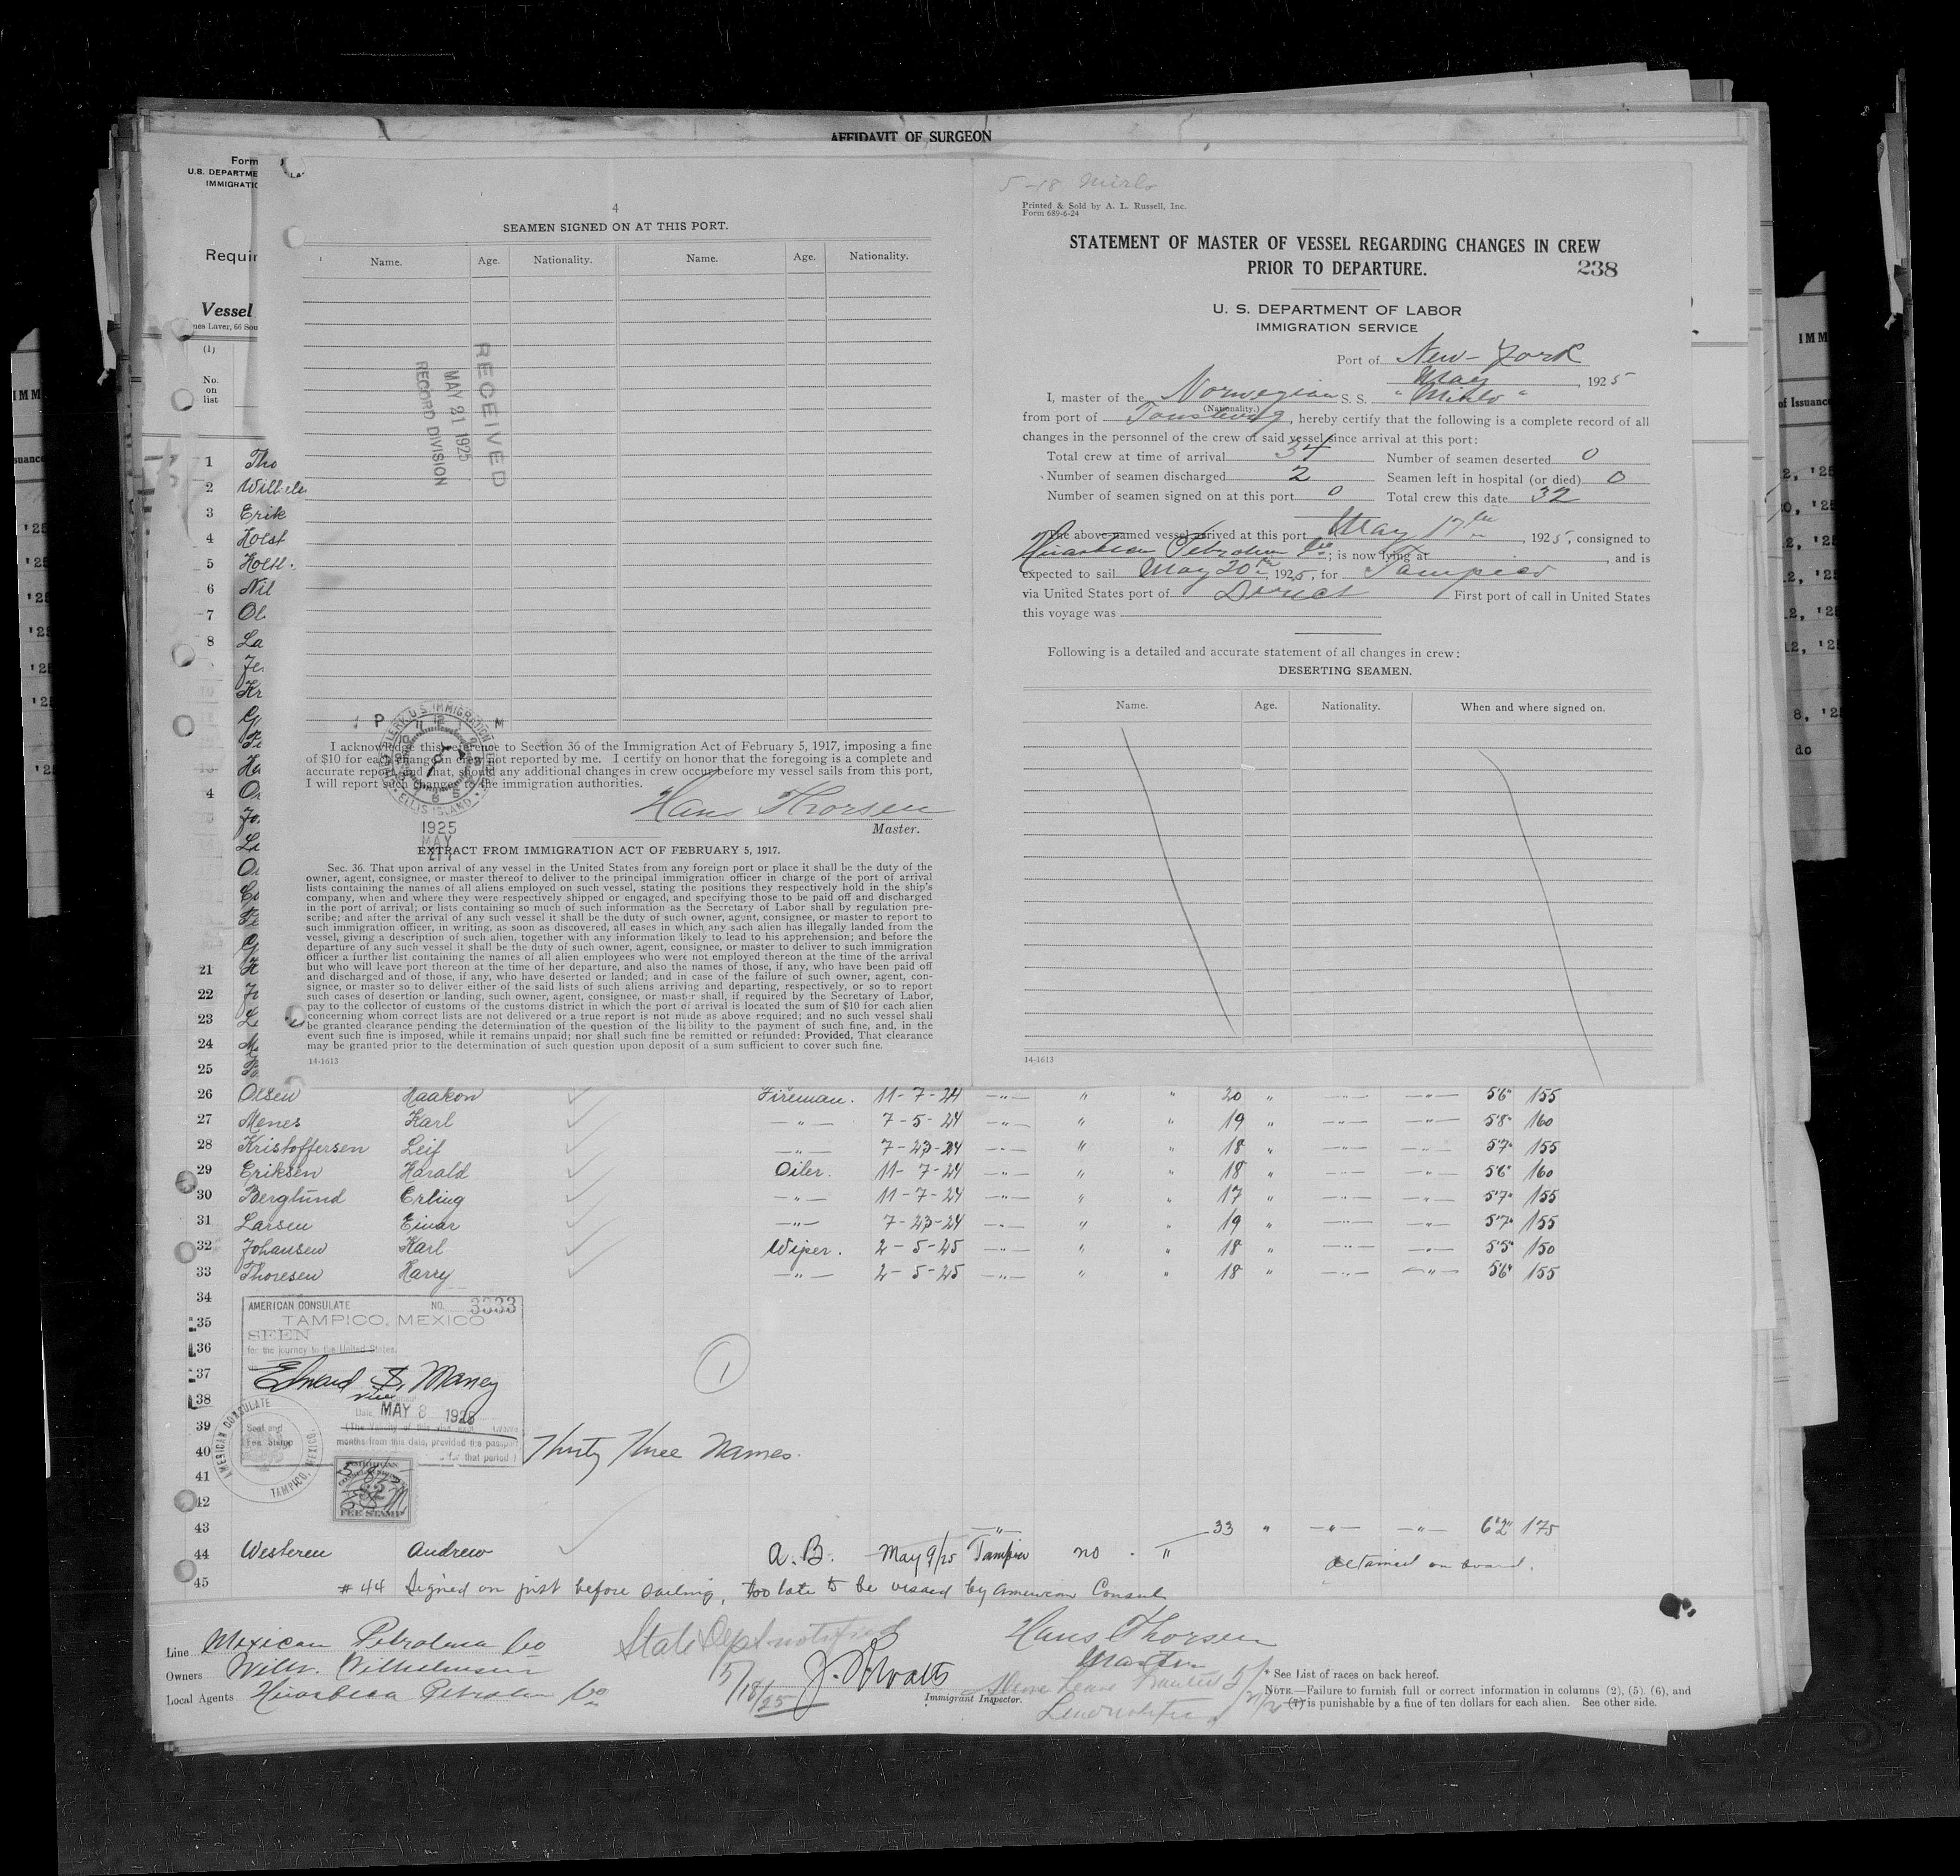 AFFIDAVIT OF SURGEON
Form
U.S. DEPARTME
IMMIGRATIO
Requir
Vessel
nes Laver, 66 Sou
(1)
No.
on
list
1 Tho
2 Wilhelm
3 Erik
4 Holst
5
6 Nil
7 Ol
8 La
Je
Kr
4
SEAMEN SIGNED ON AT THIS PORT.
Name. Age. Nationality. Name. Age. Nationality.
RECEIVED
MAY 21 1925
RECORD DIVISION
I acknowledge this reference to Section 36 of the Immigration Act of February 5, 1917, imposing a fine
of $10 for each change in crew not reported by me. I certify on honor that the foregoing is a complete and
accurate report, and that, should any additional changes in crew occur before my vessel sails from this port,
I will report such changes to the immigration authorities.
Hans Thorsen
Master.
ELLIS ISLAND
1925
MAY
EXTRACT FROM IMMIGRATION ACT OF FEBRUARY 5, 1917.
Sec. 36. That upon arrival of any vessel in the United States from any foreign port or place it shall be the duty of the
owner, agent, consignee, or master thereof to deliver to the principal immigration officer in charge of the port of arrival
lists containing the names of all aliens employed on such vessel, stating the positions they respectively hold in the ship's
company, when and where they were respectively shipped or engaged, and specifying those to be paid off and discharged
in the port of arrival; or lists containing so much of such information as the Secretary of Labor shall by regulation pre-
scribe; and after the arrival of any such vessel it shall be the duty of such owner, agent, consignee, or master to report to
such immigration officer, in writing, as soon as discovered, all cases in which any such alien has illegally landed from the
vessel, giving a description of such alien, together with any information likely to lead to his apprehension; and before the
departure of any such vessel it shall be the duty of such owner, agent, consignee, or master to deliver to such immigration
officer a further list containing the names of all alien employees who were not employed thereon at the time of the arrival
but who will leave port thereon at the time of her departure, and also the names of those, if any, who have been paid off
and discharged and of those, if any, who have deserted or landed; and in case of the failure of such owner, agent, con-
signee, or master so to deliver either of the said lists of such aliens arriving and departing, respectively, or so to report
such cases of desertion or landing, such owner, agent, consignee, or master shall, if required by the Secretary of Labor,
pay to the collector of customs of the customs district in which the port of arrival is located the sum of $10 for each alien
concerning whom correct lists are not delivered or a true report is not made as above required; and no such vessel shall
be granted clearance pending the determination of the question of the liability to the payment of such fine, and, in the
event such fine is imposed, while it remains unpaid; nor shall such fine be remitted or refunded: Provided, That clearance
may be granted prior to the determination of such question upon deposit of a sum sufficient to cover such fine.
14-1613
5-18 Mirlo
Printed & Sold by A. L. Russell, Inc.
Form 689-6-24
STATEMENT OF MASTER OF VESSEL REGARDING CHANGES IN CREW
PRIOR TO DEPARTURE. 238
U. S. DEPARTMENT OF LABOR
IMMIGRATION SERVICE
Port of New-York
May, 1925
I, master of the Norwegian S. S. "Mirlo"
(Nationality.)
from port of Tonsberg, hereby certify that the following is a complete record of all
changes in the personnel of the crew of said vessel since arrival at this port:
Total crew at time of arrival 34 Number of seamen deserted 0
Number of seamen discharged 2 Seamen left in hospital (or died) 0
Number of seamen signed on at this port 0 Total crew this date 32
The above-named vessel arrived at this port May 17th, 1925, consigned to
Huasteca Petroleum Co; is now lying at , and is
expected to sail May 20th, 1925, for Tampico
via United States port of Direct First port of call in United States
this voyage was
Following is a detailed and accurate statement of all changes in crew:
DESERTING SEAMEN.
Name. Age. Nationality. When and where signed on.
14-1613
21
22
23
24
25
26 Olsen Haakon Fireman. 11-7-24 -"- " " 20 " -"- -"- 5'6" 155
27 Menes Karl -"- 7-5-24 -"- " " 19 " -"- -"- 5'8" 160
28 Kristoffersen Leif -"- 7-23-24 -"- " " 18 " -"- -"- 5'7" 155
29 Eriksen Harald Oiler. 11-7-24 -"- " " 18 " -"- -"- 5'6" 160
30 Berglund Erling -"- 11-7-24 -"- " " 17 " -"- -"- 5'7" 155
31 Larsen Einar -"- 7-23-24 -"- " " 19 " -"- -"- 5'7" 155
32 Johansen Karl Wiper. 2-5-25 -"- " " 18 " -"- -"- 5'5" 150
33 Thoresen Harry -"- 2-5-25 -"- " " 18 " -"- -"- 5'6" 155
34
35
36
37
38
39
40
41
42
43
AMERICAN CONSULATE NO. 3333
TAMPICO, MEXICO
SEEN
for the journey to the United States.
Edward S. Maney
Vice
Date MAY 8 1925
Seal and
Fee Stamp
months from this date, provided the passport
for that period)
AMERICAN CONSULATE
TAMPICO, MEXICO
FEE STAMP
1
Thirty Three Names.
44 Westeren Andrew A.B. May 9/25 Tampico no " 33 " -"- -"- 6'2" 175
detained on board.
45
#44 Signed on just before sailing, too late to be visaed by American Consul
Line Mexican Petroleum Co
Owners Wilh. Wilhelmsen
Local Agents Huasteca Petroleum Co
State Dept notified
5/18/25
Immigrant Inspector.
Hans Thorsen
Master
* See List of races on back hereof.
NOTE.—Failure to furnish full or correct information in columns (2), (5), (6), and
(7) is punishable by a fine of ten dollars for each alien. See other side.
IMM
of Issuance
do